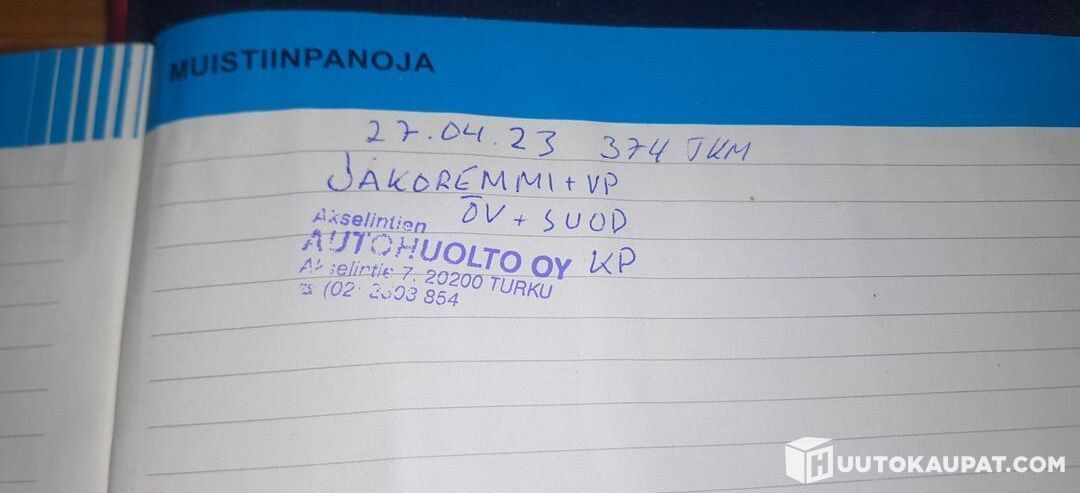 MUISTIINPANOJA
27.04.23 374 TKM
JAKOREMMI + VP
ÖV + SUOD
Akselintien
AUTOHUOLTO OY KP
Akselintie 7. 20200 TURKU
(02)
854
HUUTOKAUPAT.COM